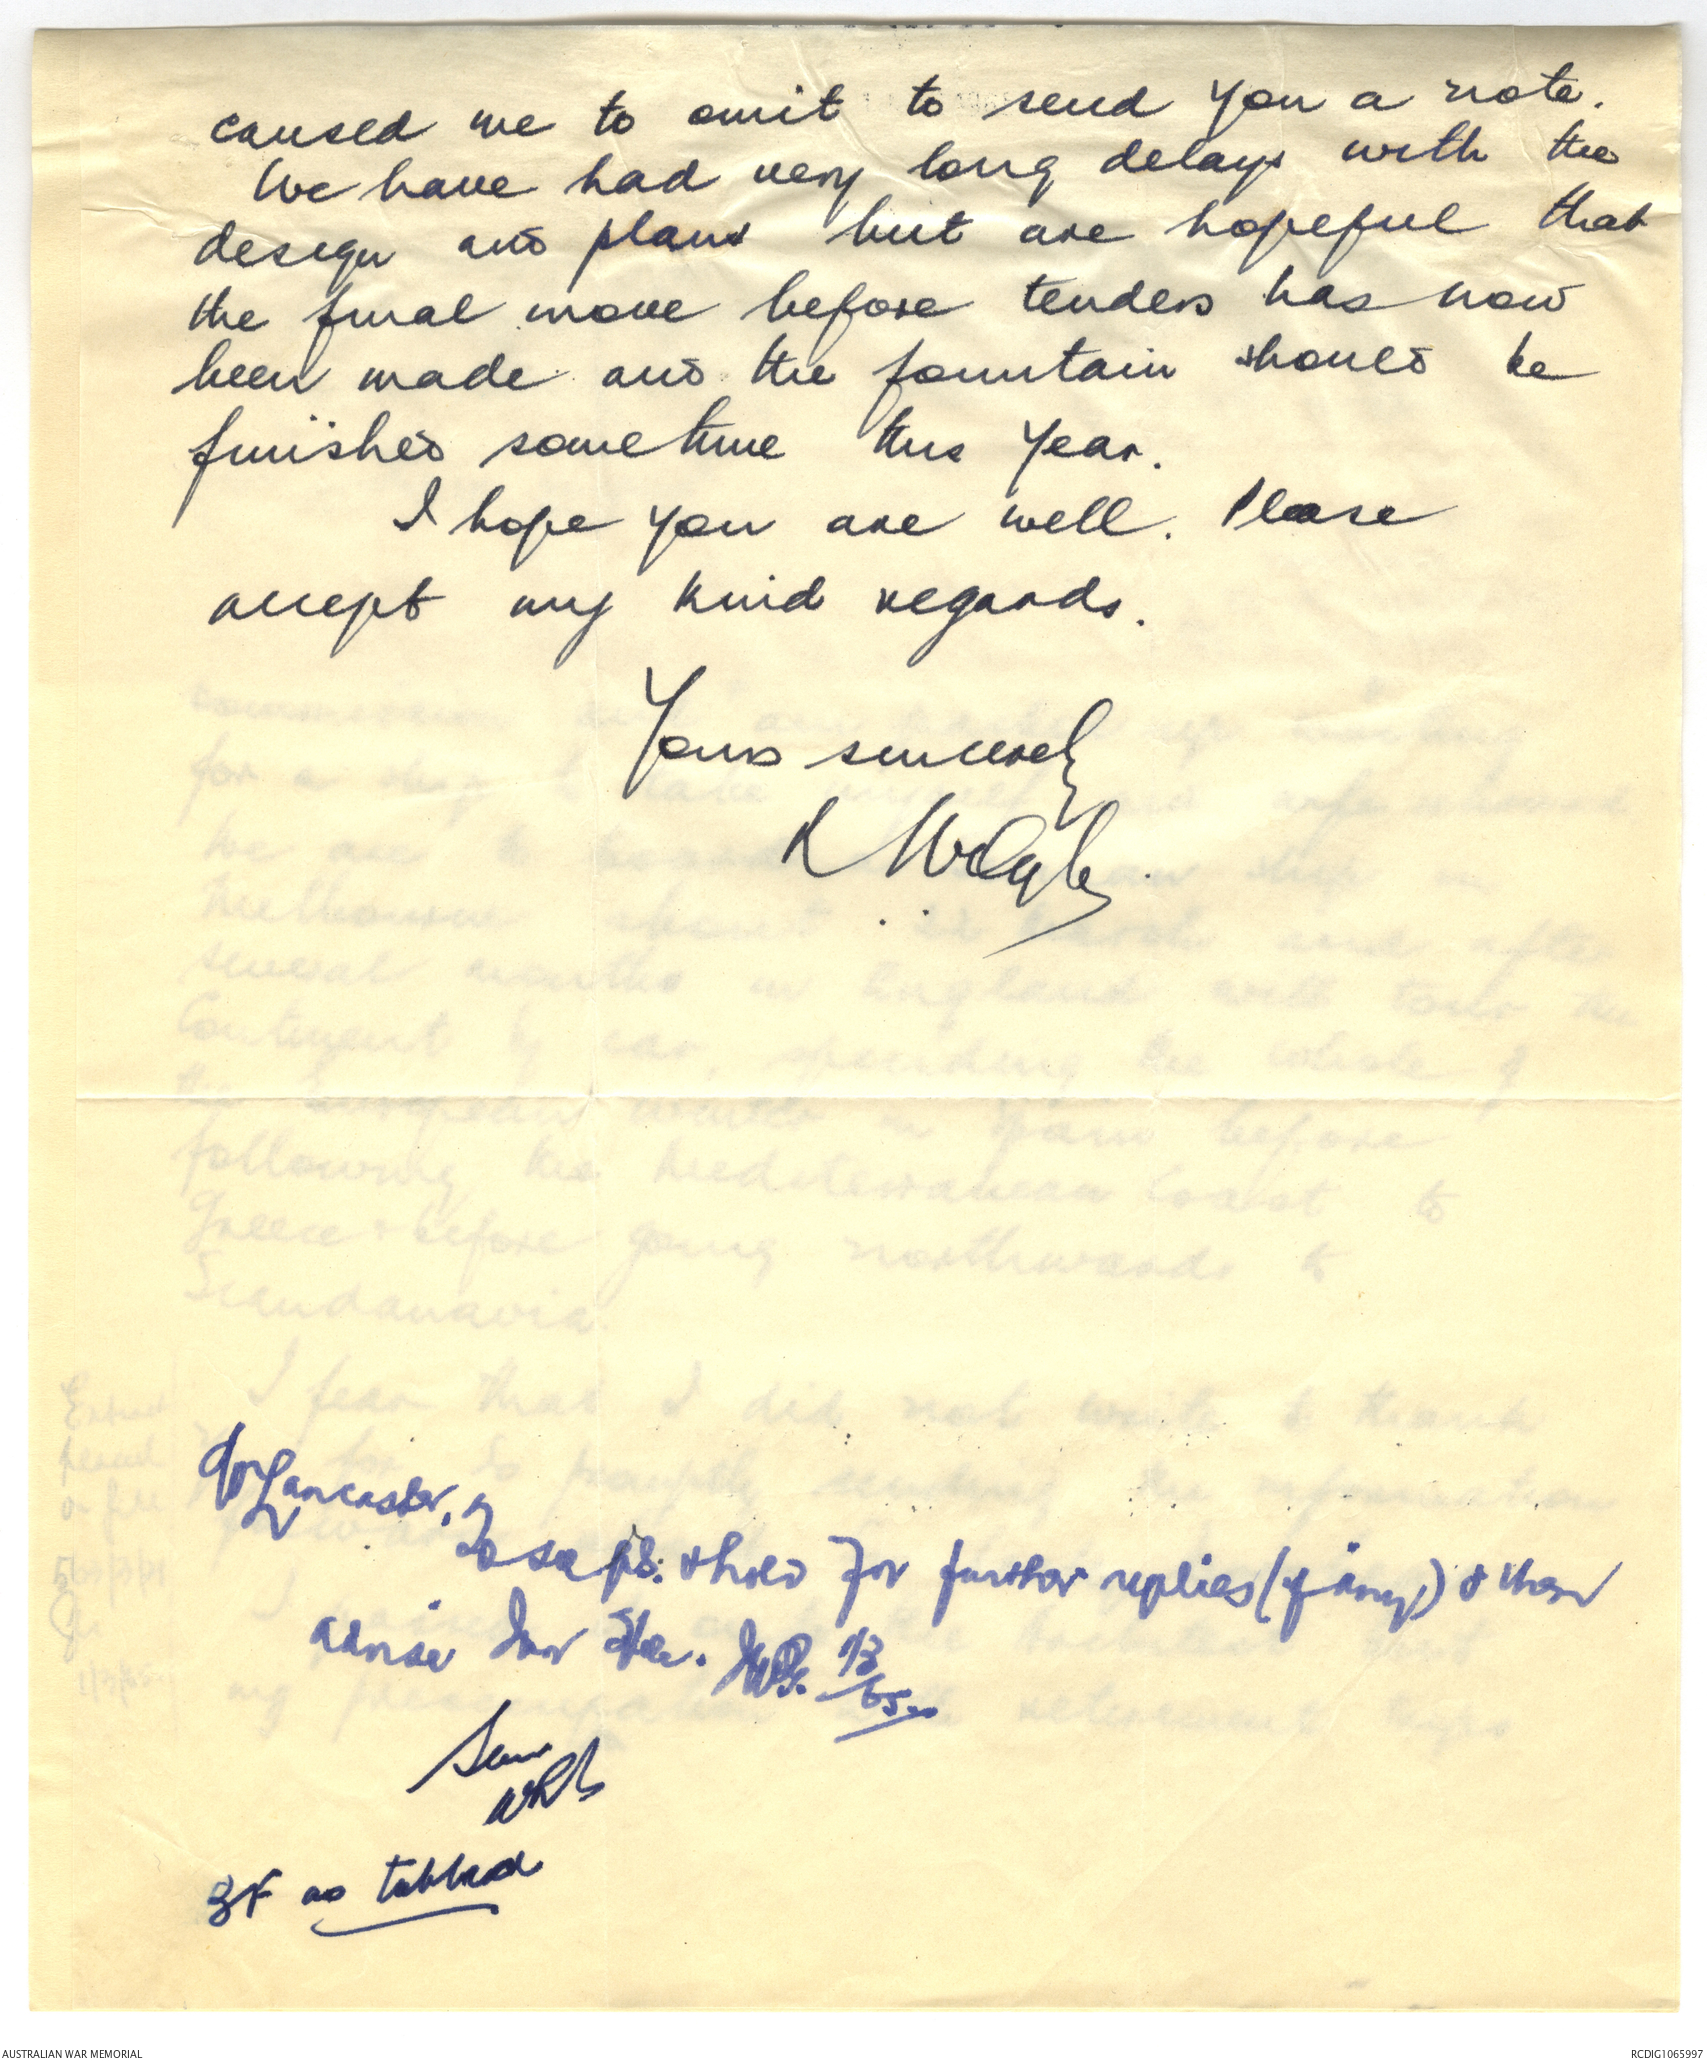 caused me to omit to send you a note.
We have had very long delays with the
design and plans but are hopeful that
the final move before tenders has now
been made and the fountain should be
finished sometime this year.
I hope you are well. Please
accept my kind regards.
Yours sincerely
Mr Lancaster,
To see pls. & hold for further replies (if any) & then
advise
1/3/65
Seen
BF as tabbed
AUSTRALIAN WAR MEMORIAL
RCDIG1065997